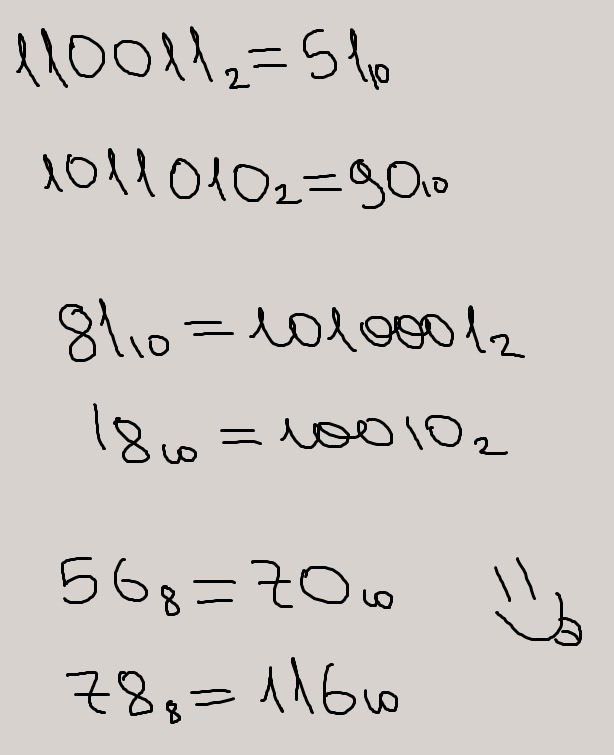 110011₂=51₁₀
1011010₂=90₁₀
81₁₀=1010001₂
18₁₀=10010₂
56₈=70₁₀
78₈=116₁₀